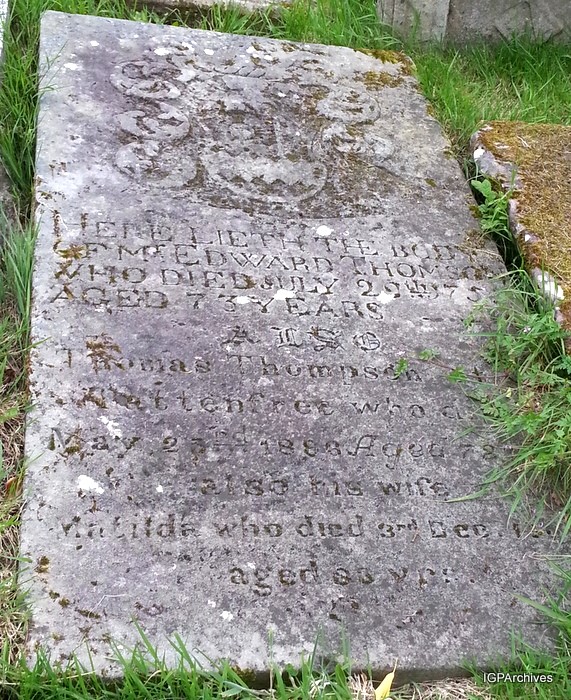 HERE LIETH THE BODY
OF Mr EDWARD THOMSON
WHO DIED JULY
AGED 73 YEARS
ALSO
Thomas Thompson
who
May 23rd 1886 Aged 78
also his wife
Matilda who died 3rd Dec.
aged yrs.
IGPArchives